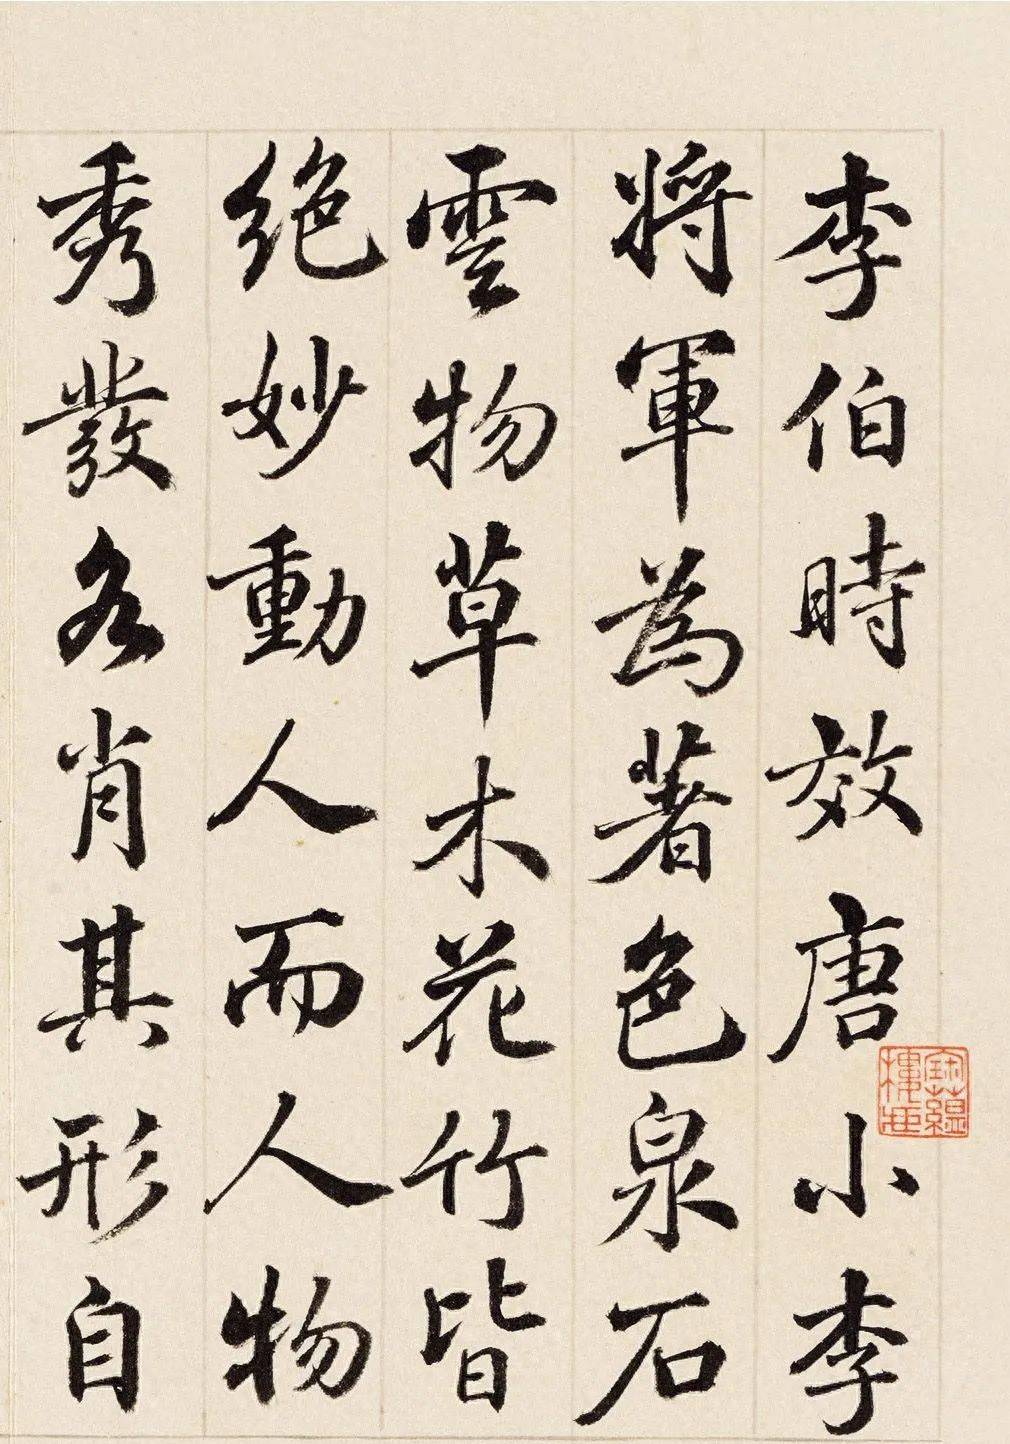 李伯時效唐小李
將軍為著色泉石
雲物草木花竹皆
絶妙動人而人物
秀發各肖其形自